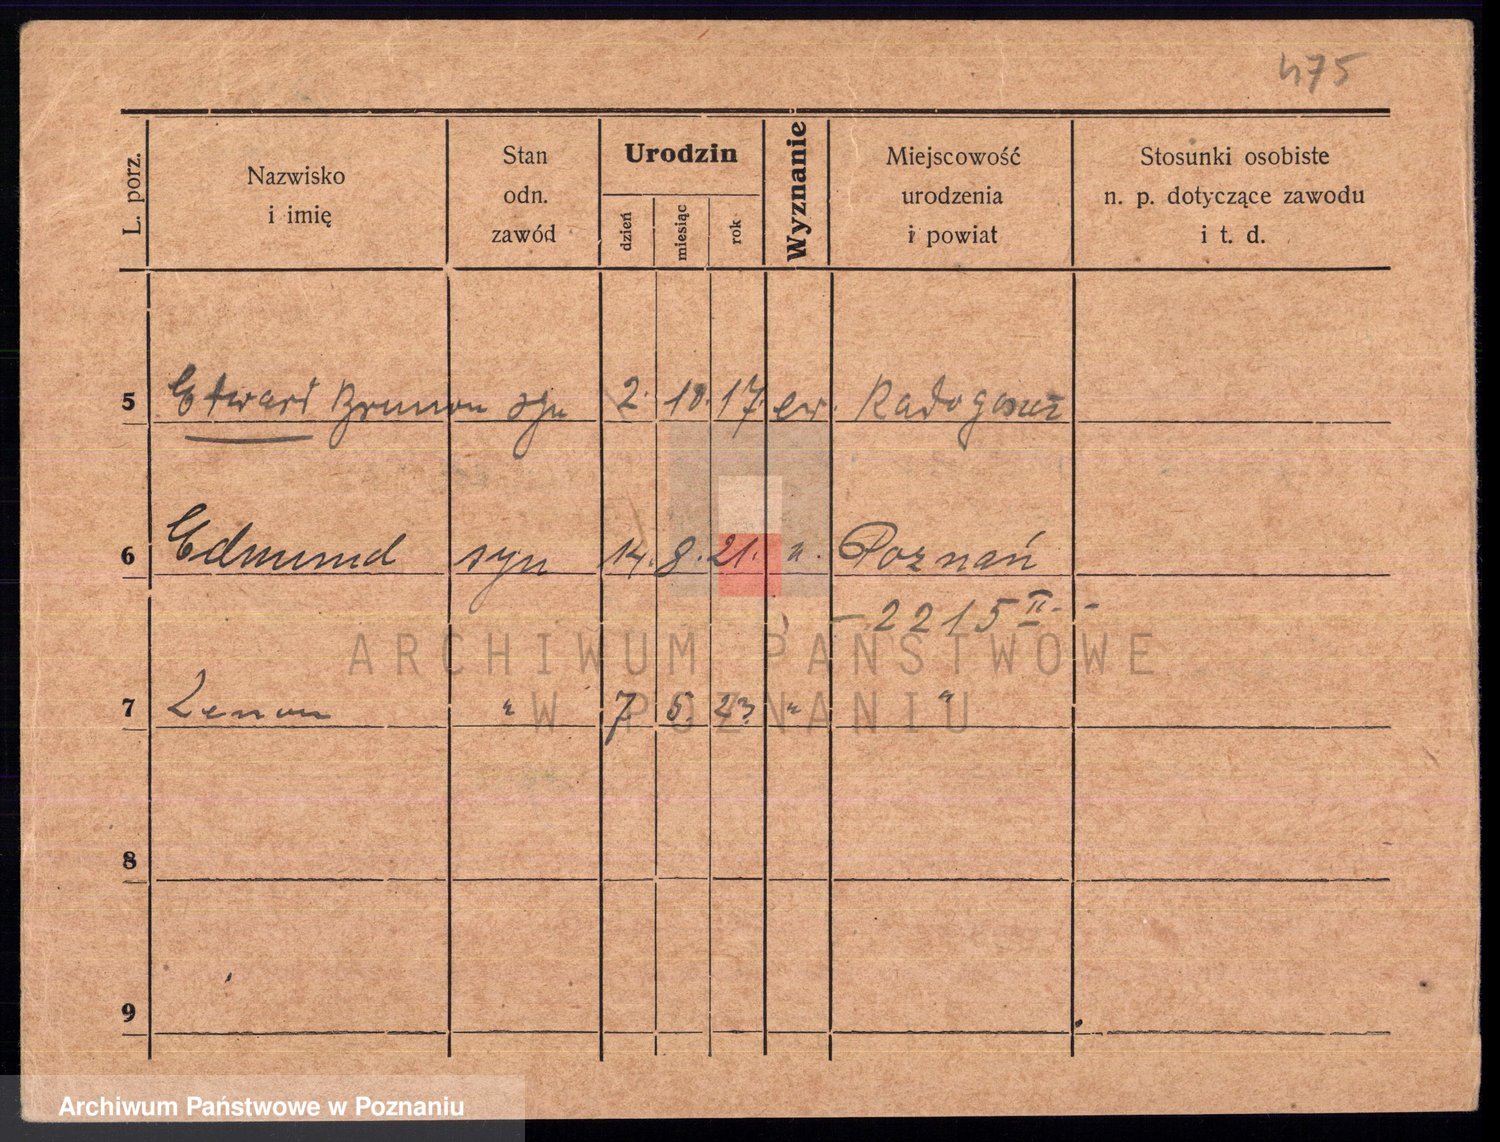 475
L. porz.
Nazwisko
i imię
Stan
odn.
zawód
Urodzin
dzień
miesiąc
rok
Wyznanie
Miejscowość
urodzenia
i powiat
Stosunki osobiste
n. p. dotyczące zawodu
i t. d.
5 Edward Brunon syn 2. 10. 17. ew. Radogoszz
6 Edmund syn 14. 8. 21. " Poznań
- 2215 II - -
7 Zenon " 7 5. 23 " "
8
9
ARCHIWUM PAŃSTWOWE
W POZNANIU
Archiwum Państwowe w Poznaniu